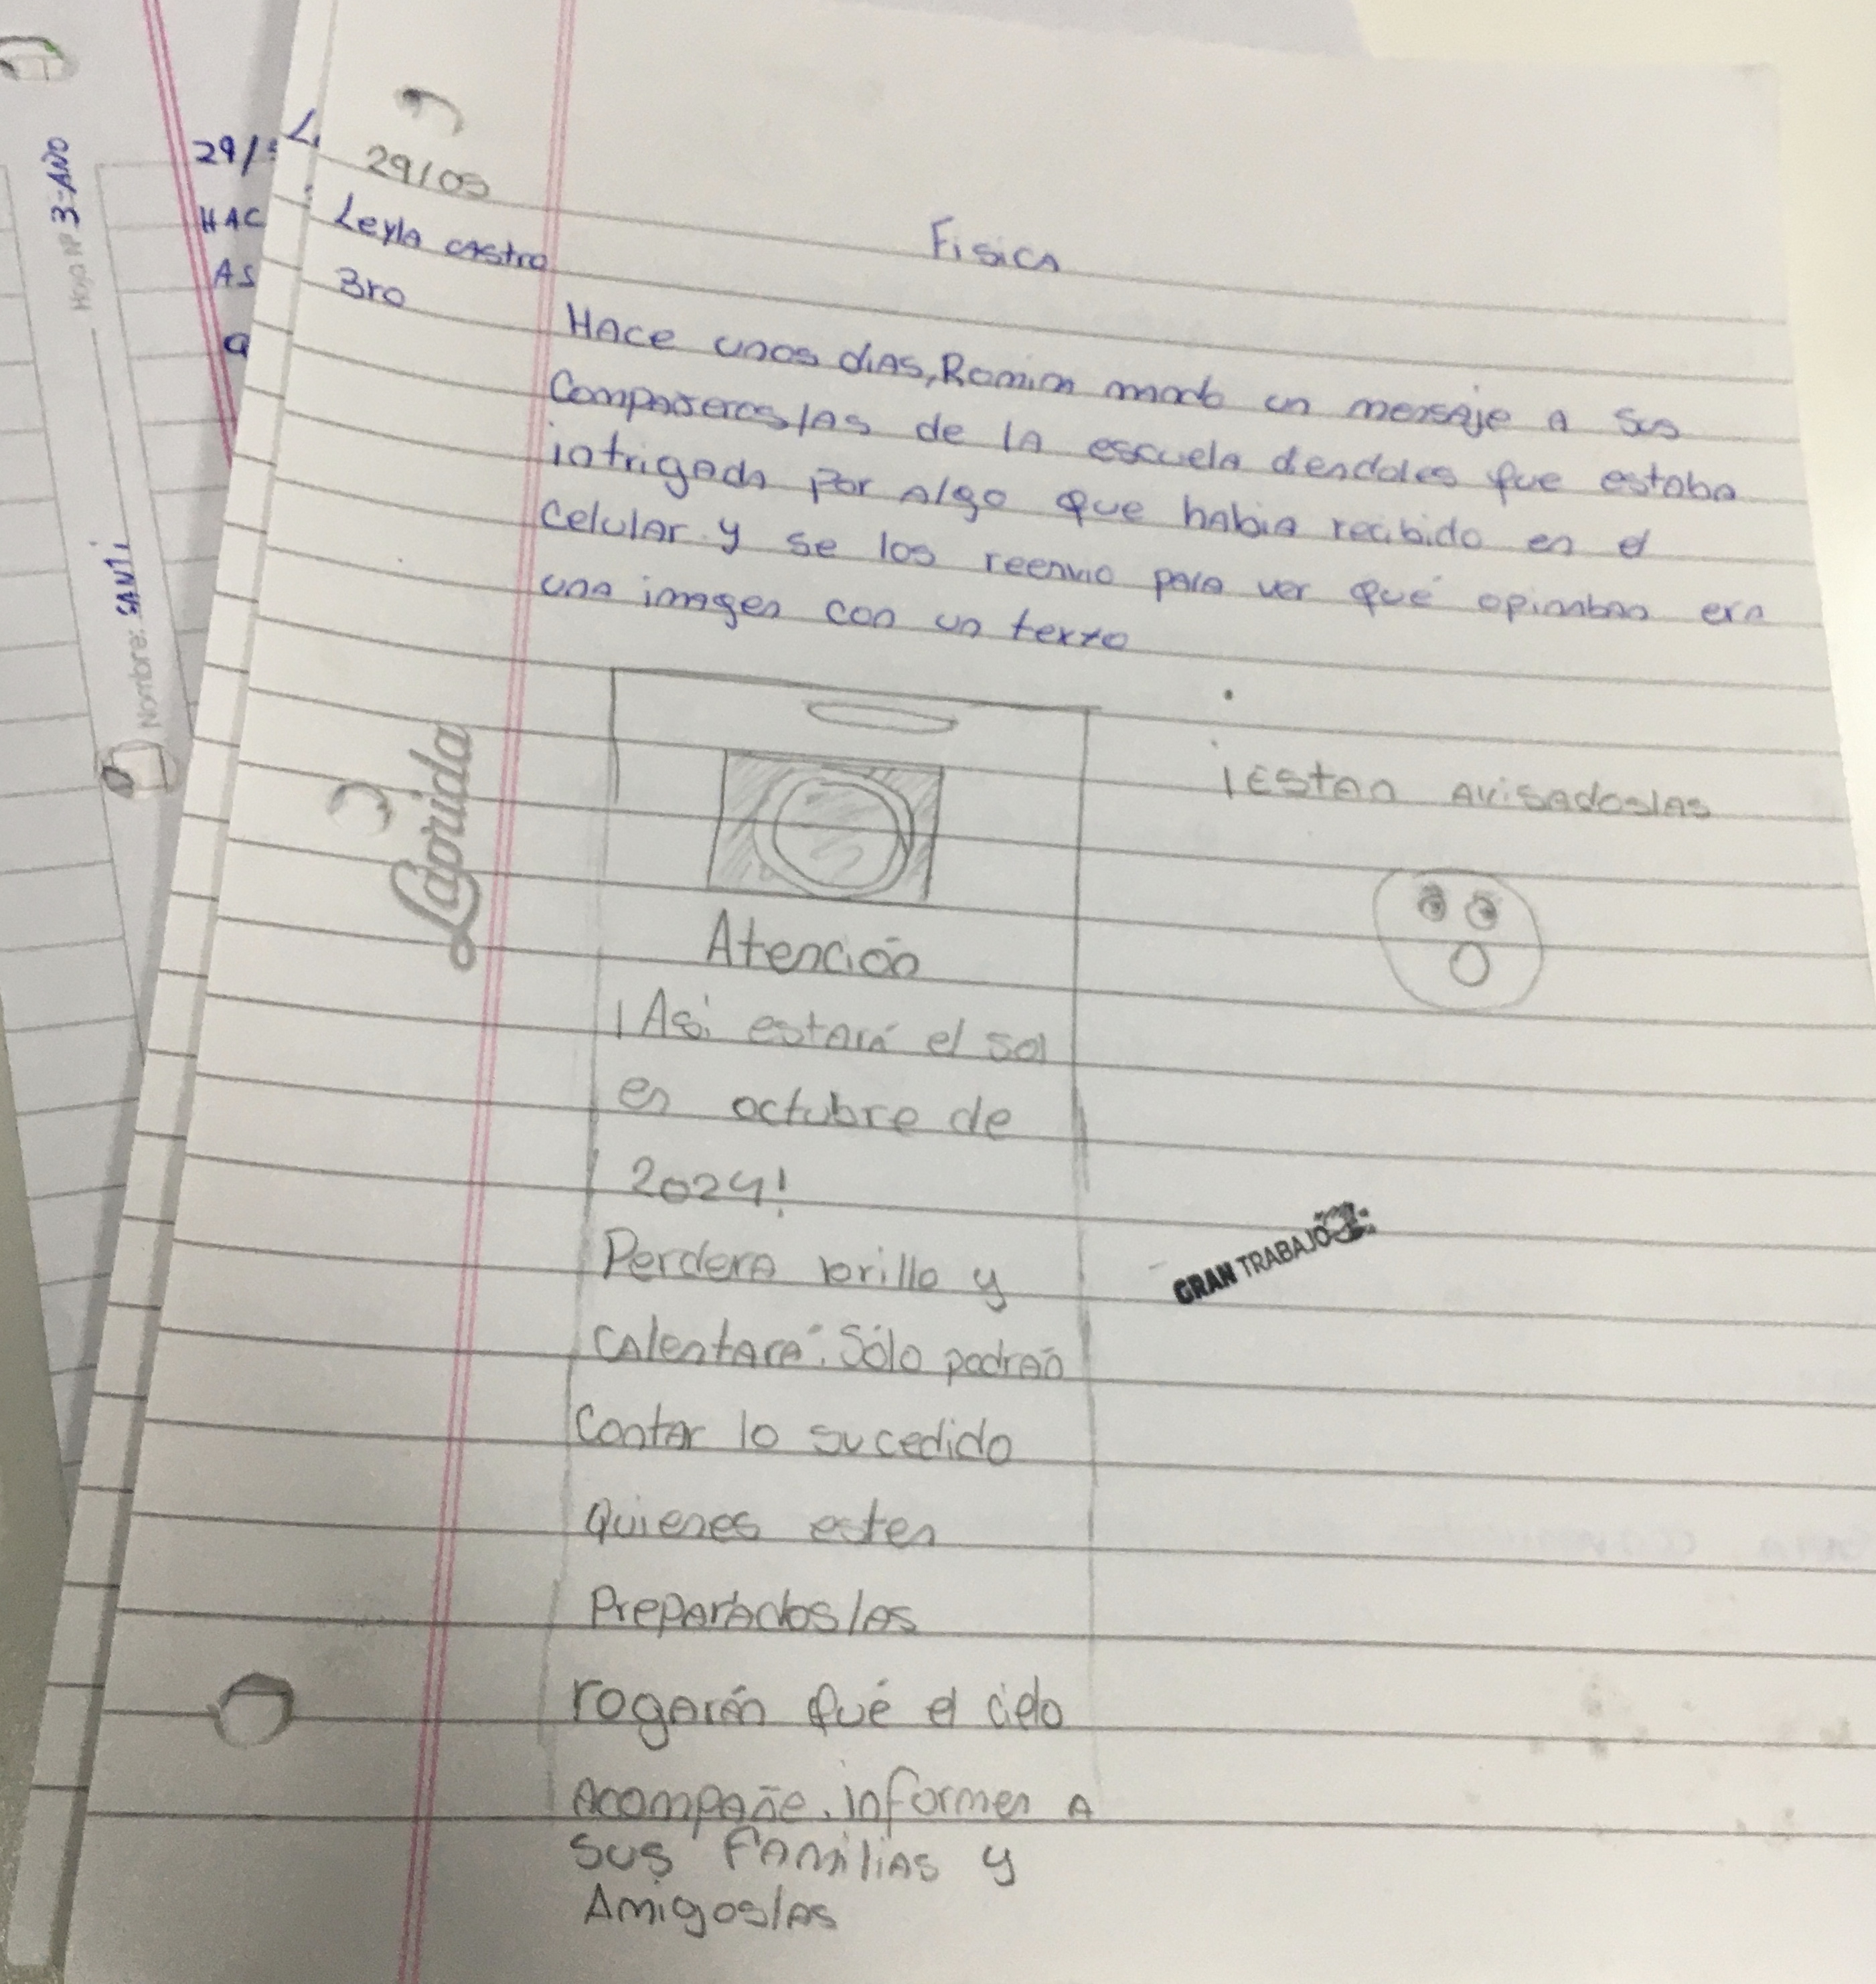 Hoja Nº 3-AÑO
Nombre: SANTi
29/
HAC
AS
a
L
29/05
Leyla CAstro
Fisica
3ro
HAce unos dias, Romina mando un mensaje A sus
Compañeros/As de lA escuela diendoles que estaba
intrigada por Algo que habia recibido en el
celular y se los reenvio para ver qué opinaban era
una imagen con un texto
Laprida
¡EStan Avisados/As
Atención
¡Asi estará el sol
en octubre de
2024!
Perdera brillo y
calentará. Sólo podrán
Contar lo sucedido
Quienes esten
Preparados/As
rogarán qué el cielo
Acompañe. informen A
sus FAmiliAs y
Amigos/As
GRAN TRABAJO